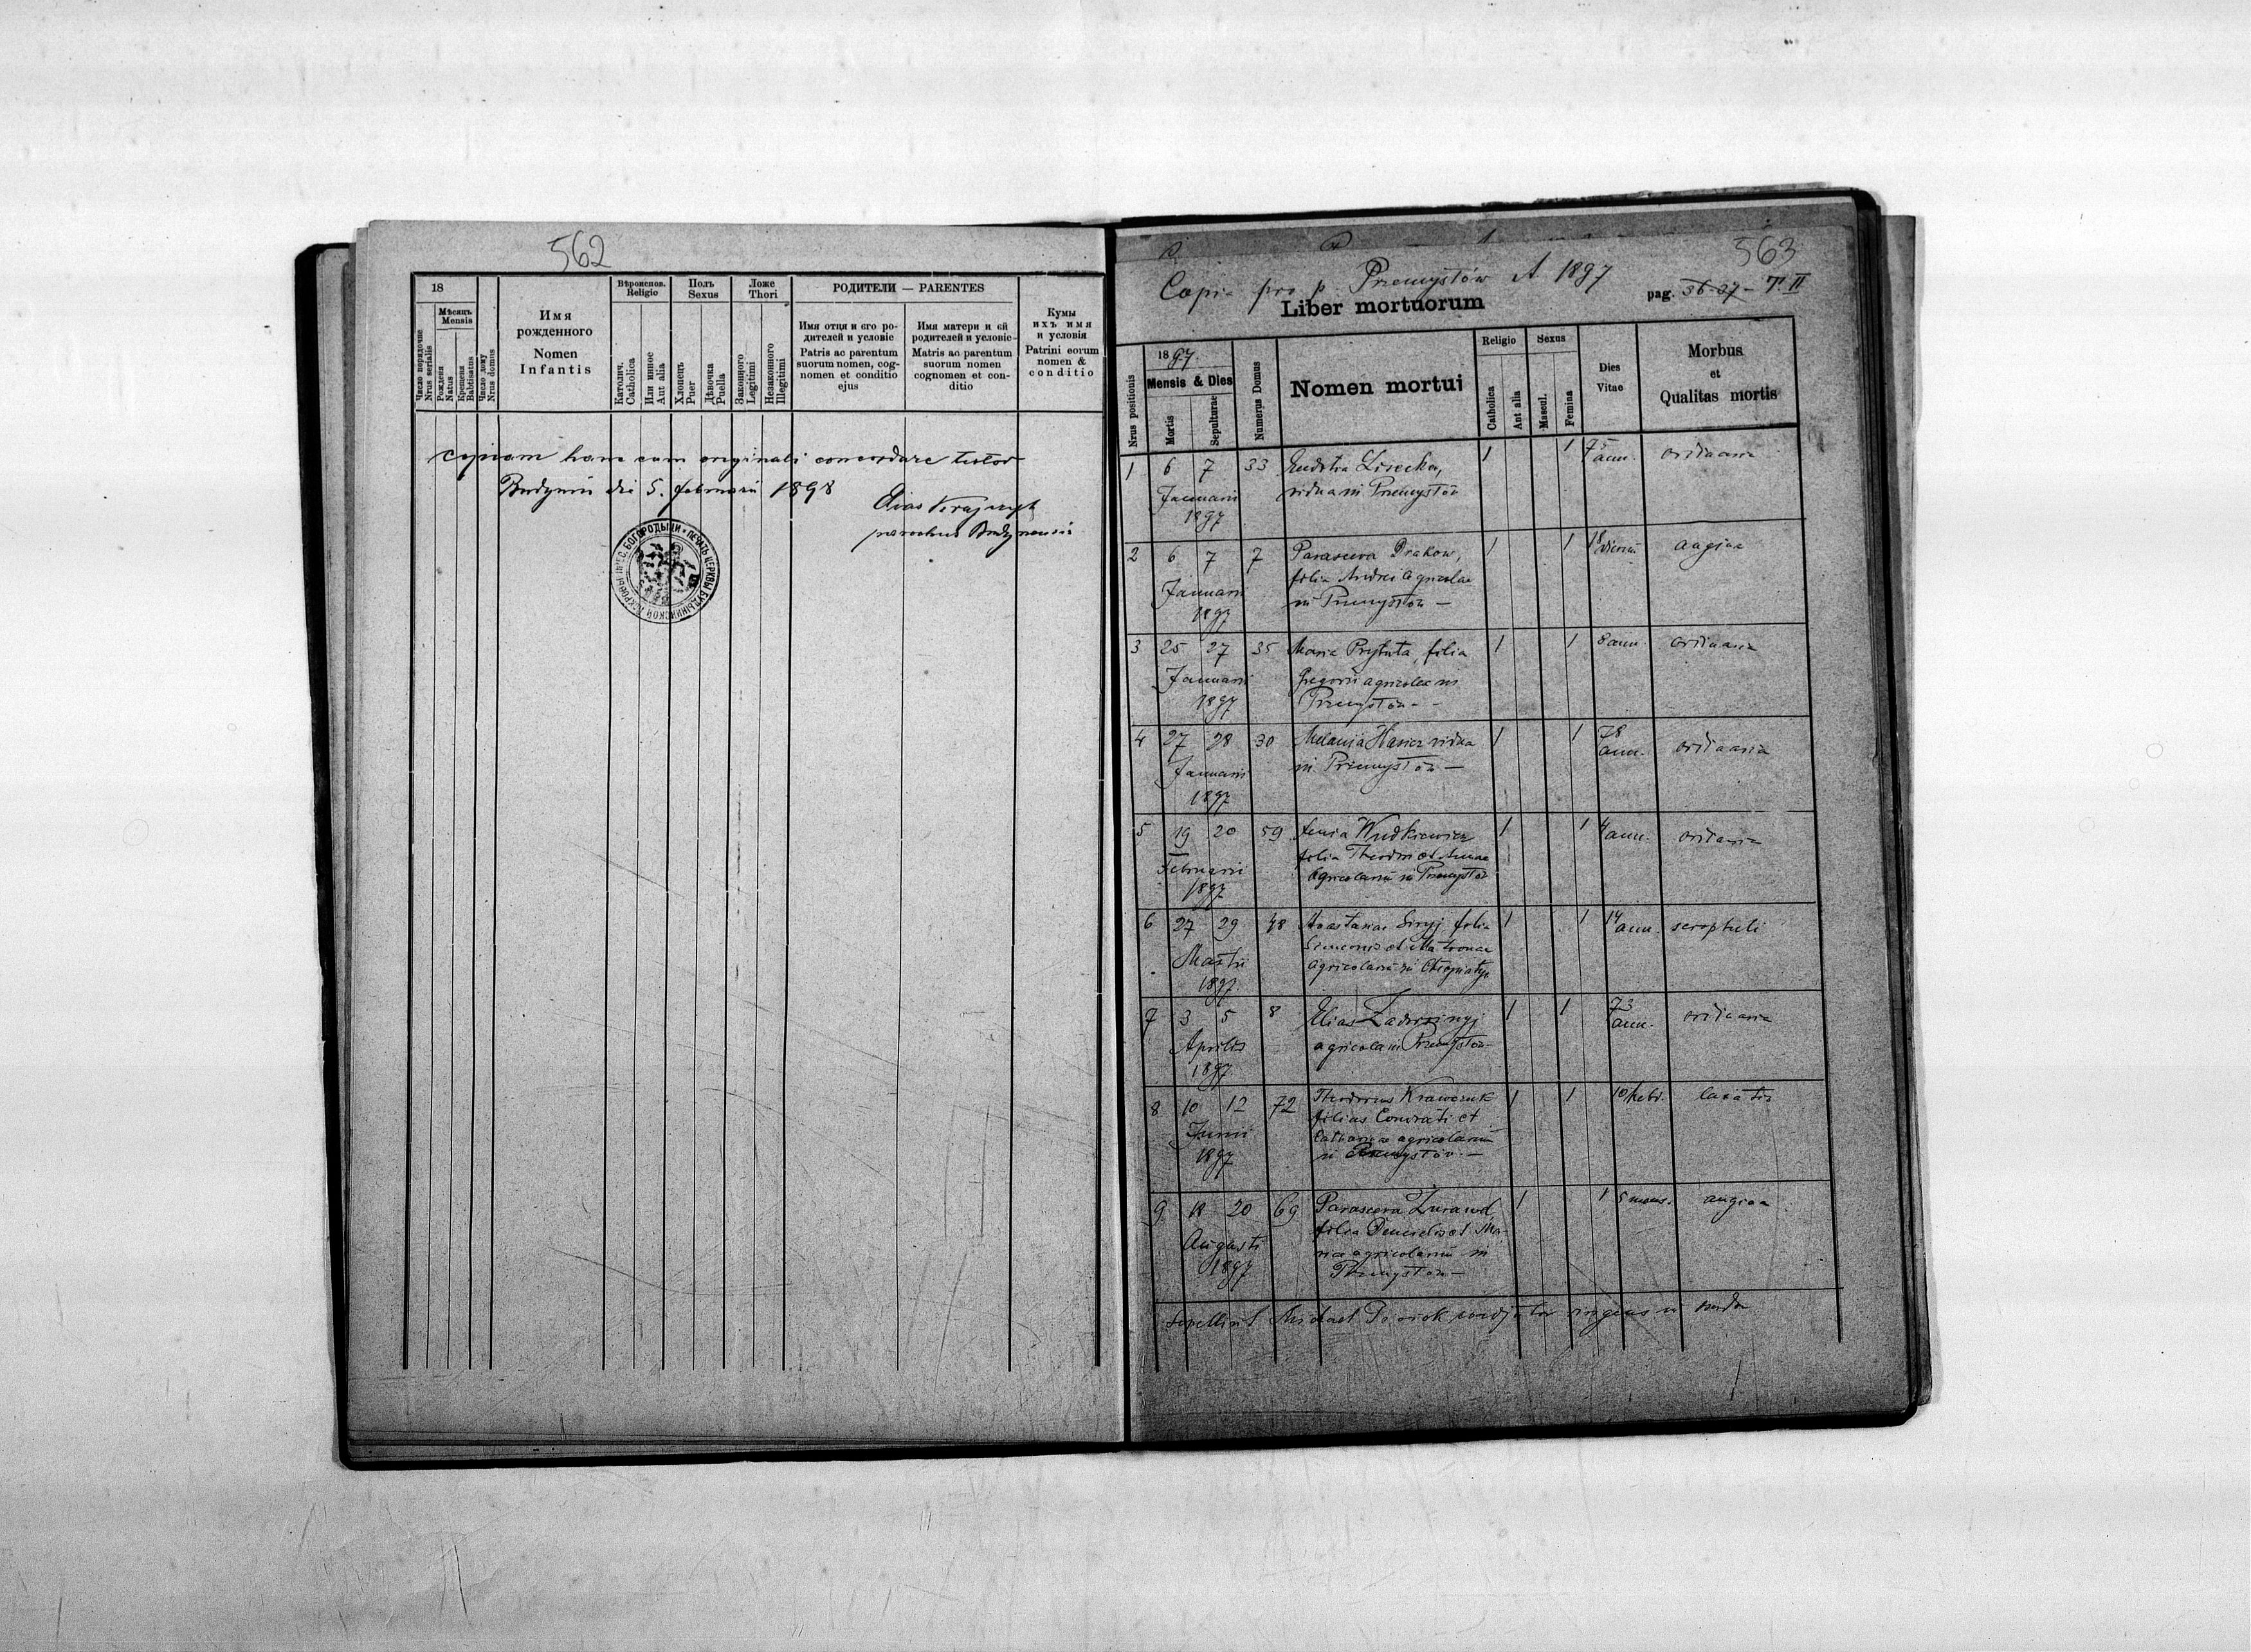 562
18
Мѣсяць
Mensis
Число порядочне
Nrus serialis
Рождея
Natus
Крещенія
Babtisatus
Число дому
Nrus domus
Имя
рожденного
Nomen
Infantis
Вѣроиспов.
Religio
Католич.
Catholica
Или инное
Aut alia
Полъ
Sexus
Хлопецъ
Puer
Дѣвочка
Puella
Ложе
Thori
Законного
Legitimi
Незаконного
Illegitimi
РОДИТЕЛИ — PARENTES
Имя отця и єго ро-
дителей и условіє
Patris ac parentum
suorum nomen, cog-
nomen et conditio
ejus
Имя матери и єй
родителей и условіє
Matris ac parentum
suorum nomen
cognomen et con-
ditio
Кумы
ихъ имя
и условія
Patrini eorum
nomen &
conditio
copiam hanc cum originali concordare testor
Budynin die 5. februarii 1898
Elias
parochus Budynensis
563
Copia pro p. Przemysłów A. 1897
Liber mortuorum
pag. 36-37 - T. II
Nrus positionis
1897
Mensis & Dies
Mortis
Sepulturae
Numerus Domus
Nomen mortui
Religio
Catholica
Aut alia
Sexus
Mascul.
Femina
Dies
Vitae
Morbus
et
Qualitas mortis
1 6 7 33 Eudokia Lisecka, 1 1 75 ann. ordinaria
Januarii vidua in Przemysłów
1897
2 6 7 7 Parasceva Drakow, 1 1 18 dierum angina
Januarii filia Andrei agricolae
1897 in Przemysłów —
3 25 27 35 Maria Prytuła, filia 1 1 8 ann. ordinaria
Januarii Gregorii agricolae in
1897 Przemysłów -
4 27 28 30 Melania Hasicz vidua 1 1 78 ann. ordinaria
Januarii in Przemysłów —
1897
5 19 20 59 Xenia Wudkiewicz 1 1 4 ann. ordinaria
Februarii filia Theodori et Annae
1897 agricolarum in Przemysłów
6 27 29 48 Anastasia Siryj filia 1 1 14 ann. scrophuli
Martii Simeonis et Matronae
1897 agricolarum in
7 3 5 8 Elias Zadorożnyj 1 1 73 ann. ordinaria
Aprilis agricola in Przemysłów
1897
8 10 12 72 Theodorus Krawczuk 1 1 10 hebd.
Junii filius Conrati et
1897 Catharinae agricolarum
in Przemysłów. —
9 18 20 69 Parasceva Żurawel, 1 1 5 mens. angina
Augusti filia Demetrii et Ma-
1897 riae agricolarum in
Przemysłów —
sepelivit Michael